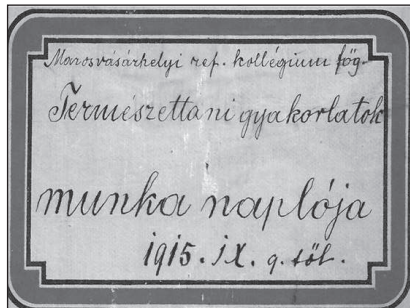 Marosvásárhelyi ref. kollégium főg.
Természettani gyakorlatok
munka naplója
1915. IX. 9. től.